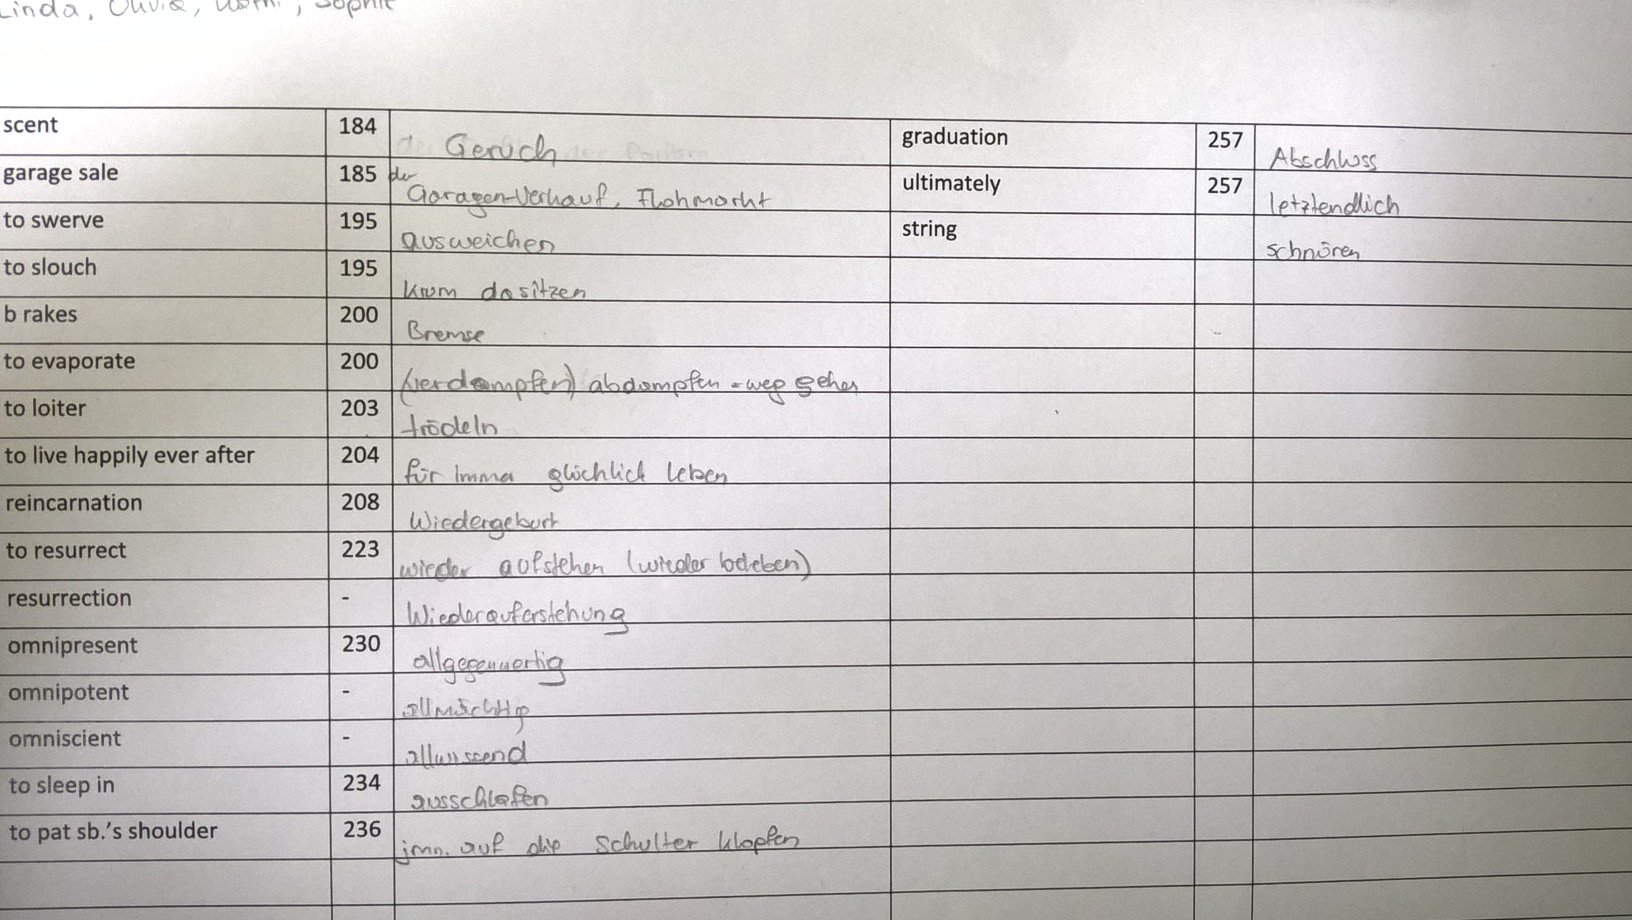 Linda, Olivia, Sophie
scent 184 Geruch
garage sale 185 der Garagen-Verkauf, Flohmarkt
to swerve 195 ausweichen
to slouch 195 krum dasitzen
b rakes 200 Bremse
to evaporate 200 (verdampfen) abdampfen = weg gehen
to loiter 203 trödeln
to live happily ever after 204 für Immer glücklich leben
reincarnation 208 Wiedergeburt
to resurrect 223 wieder aufstehen (wieder beleben)
resurrection - Wiederauferstehung
omnipresent 230 allgegenwärtig
omnipotent - allmächtig
omniscient - allwissend
to sleep in 234 ausschlafen
to pat sb.'s shoulder 236 jmn. auf die Schulter klopfen
graduation 257 Abschluss
ultimately 257 letztendlich
string schnüren